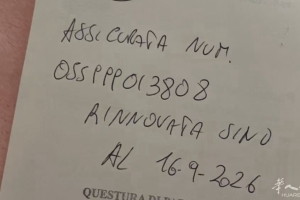 ASSICURATA NUM.
OSSPPP013808
RINNOVATA SINO
AL 16-9-2026
QUESTURA DI
华人
HUAREN